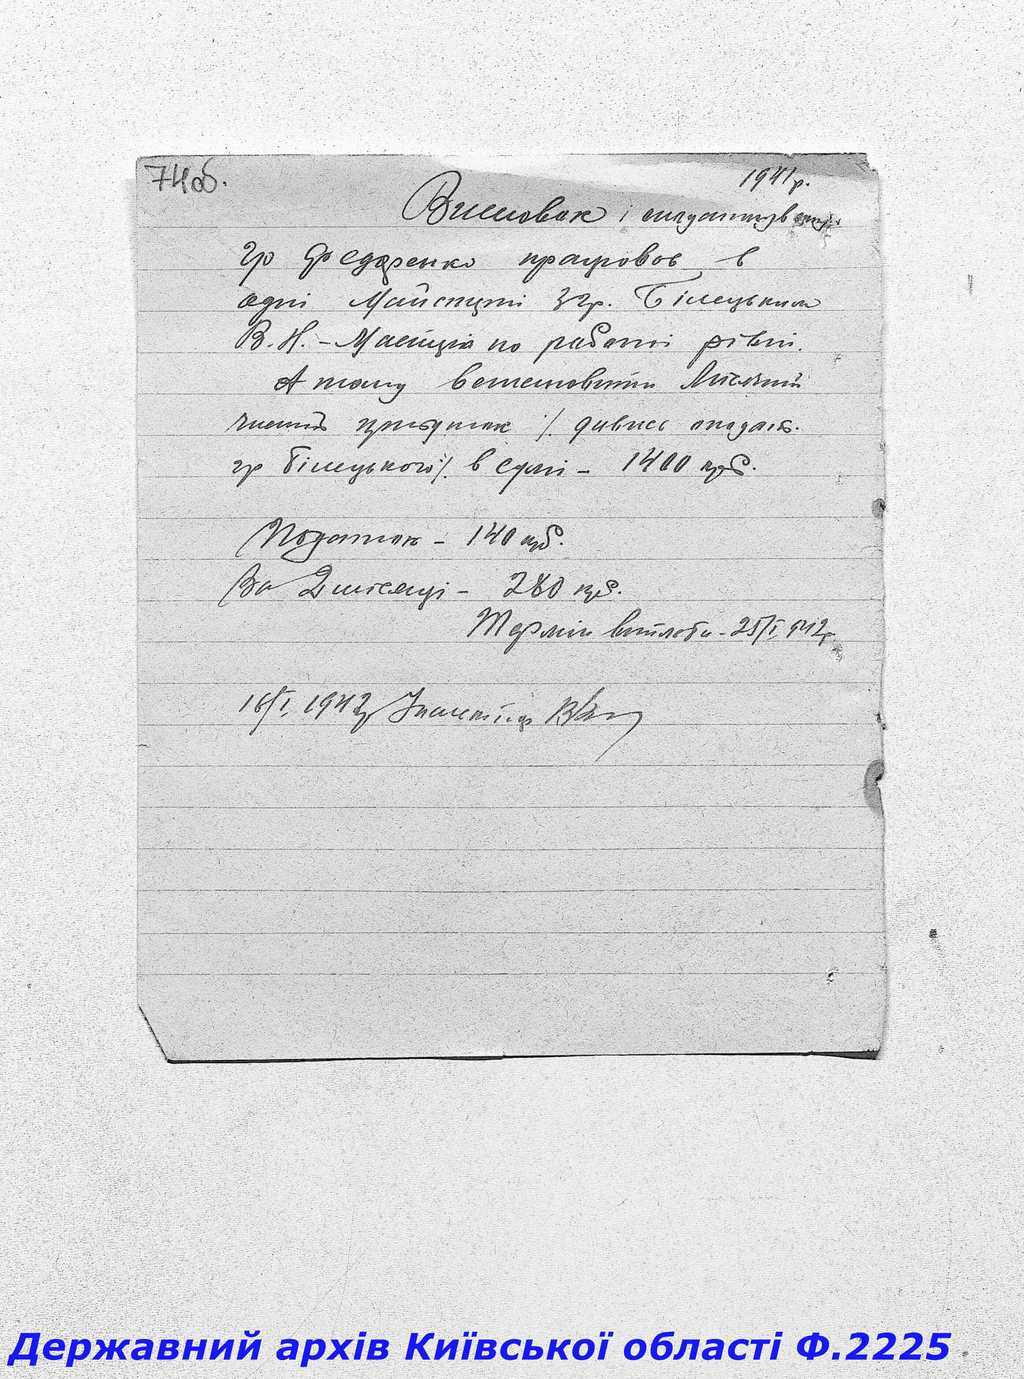 74об.
1941р.
Висновок і оподаткування
гр Федоренко працював в
одні Майстерні з гр. Білецьким
В.Н. - Маестція по работі рівні.
А тому встановити Місячний
чистий прибуток /. дивись оподатк.
гр Білецького /. в сумі - 1400 крб.
Податок - 140 крб.
За 2 місяці - 280 крб.
Термін виплати - 25/I 942р.
16/I. 1942р Інспектор
Державний архів Київської області Ф.2225